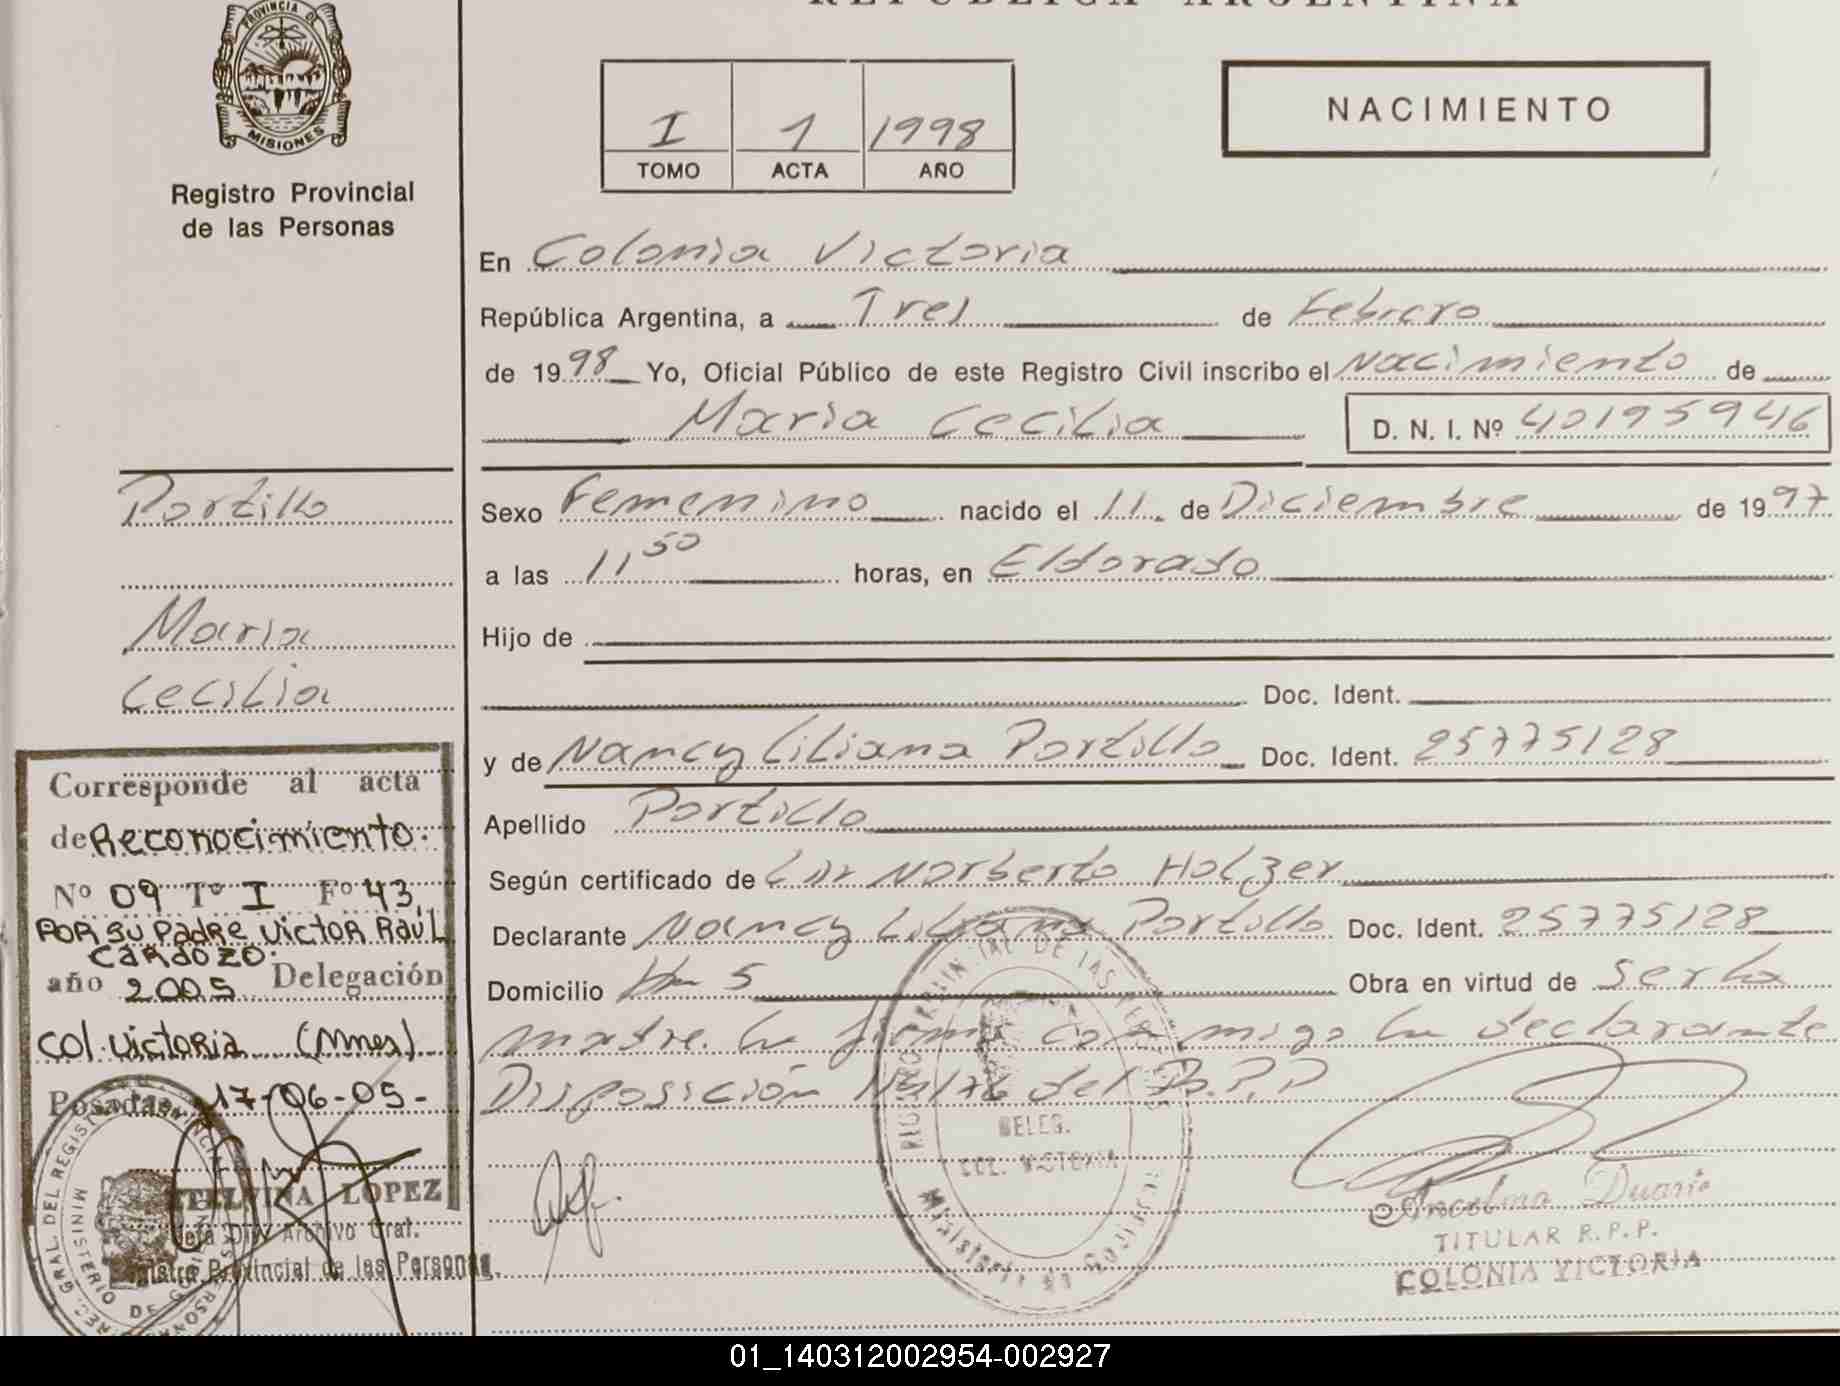 REPUBLICA ARGENTINA
PROVINCIA DE
MISIONES
Registro Provincial
de las Personas
I 1 1998
TOMO ACTA AÑO
NACIMIENTO
En Colonia Victoria
República Argentina, a Tres de Febrero
de 1998 Yo, Oficial Público de este Registro Civil inscribo el Nacimiento de
Maria Cecilia D. N. I. Nº 40195946
Portillo
Maria
Cecilia
Sexo Femenino nacido el 11 de Diciembre de 1997
a las 11 50 horas, en Eldorado
Hijo de
Doc. Ident.
y de Nancy Liliana Portillo Doc. Ident. 25775128
Apellido Portillo
Según certificado de Norberto Holzer
Declarante Nancy Liliana Portillo Doc. Ident. 25775128
Domicilio Km 5 Obra en virtud de ser la
madre. La firma conmigo la declarante
Disposición del R.P.P
Corresponde al acta
de Reconocimiento.
Nº 09 Tº I Fº 43
POR su Padre Victor Raul
CARdozo.
año 2005 Delegación
Col. Victoria (Mnes)
Posadas 17-06-05-
ETELVINA LOPEZ
Jefa Div. Archivo Gral.
Registro Provincial de las Personas.
DELEG.
COL. VICTORIA
Ancelmo Duarte
TITULAR R.P.P.
COLONIA VICTORIA
01_140312002954-002927